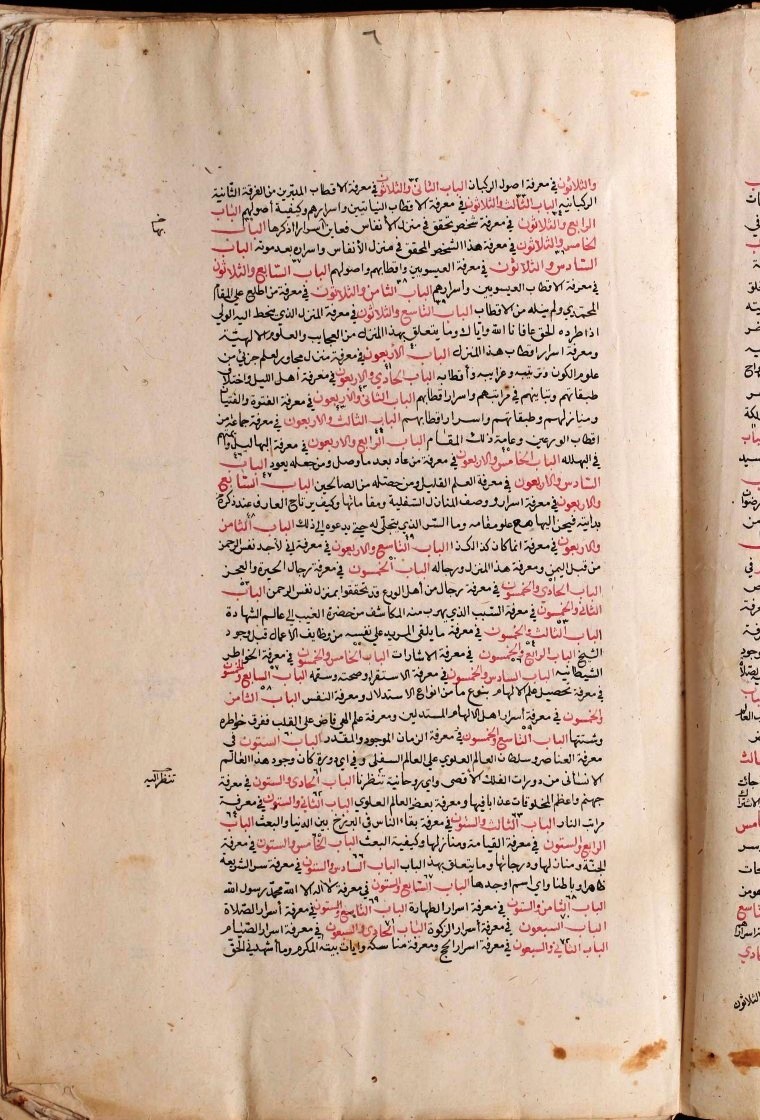 ٦
والثلاثون في معرفة اصول الركبان الباب الثانى والثلاثون في معرفة الاقطاب المدبرين من الفرقة الثانية
الركبانية الباب الثالث والثلاثون في معرفة الاقطاب النياتيين واسرارهم وكيفية أصولهم الباب
الرابع والثلاثون في معرفة شخص تحقق في منزل الأنفاس فعاين اسرارا اذكرها الباب
بها
الخامس والثلاثون في معرفة هذا الشخص المحقق في منزل الأنفاس واسراره بعد موته الباب
السادس والثلاثون في معرفة العيسويين واقطابهم واصولهم الباب السابع والثلاثون
في معرفة الاقطاب العيسويين واسرارهم الباب الثامن والثلاثون في معرفة من اطلع على المقام
المحمدي ولم ينله من الاقطاب الباب التاسع والثلاثون في معرفة المنزل الذي ينحط اليه الولي
اذا طرده الحق عافانا الله واياك وما يتعلق بهذا المنزل من العجايب والعلوم الالهية
ومعرفة اسرار اقطاب هذا المنزل الباب الأربعون في معرفة منزل مجاور لعلم جزئي من
علوم الكون وترتيبه وغرايبه وأقطابه الباب الحادي والاربعون في معرفة أهل الليل واختلاف
طبقاتهم وتباينهم في مراتبهم واسرار اقطابهم الباب الثاني والاربعون في معرفة الفتوة والفتيان
ومنازلهم وطبقاتهم واسرار اقطابهم الباب الثالث والاربعون في معرفة جماعة من
اقطاب الورعين وعامة ذلك المقام الباب الرابع والاربعون في معرفة البهاليل وأئمتهم
في البهلله الباب الخامس والاربعون في معرفة من عاد بعد ما وصل ومن جعله يعود الباب
السادس والاربعون في معرفة العلم القليل ومن حصله من الصالحين الباب السابع
والاربعون في معرفة اسرار ووصف المنازل السفلية ومقاماتها وكيف يرتاح العارف عند ذكره
بدايته فيحن اليها مع علو مقامه وما السر الذي يتجلى له حتى يدعوه الى ذلك الباب الثامن
والاربعون في معرفة انما كان كذا لكذا الباب التاسع والاربعون في معرفة إني لأجد نفس الرحمن
من قبل اليمن ومعرفة هذا المنزل ورجاله الباب الخمسون في معرفة رجال الحيرة والعجز
الباب الحادي والخمسون في معرفة رجال من أهل الورع قد تحققوا بمنزل نفس الرحمن الباب
الثاني والخمسون في معرفة السبب الذي يهرب منه المكاشف من حضرة الغيب الى عالم الشهادة
الباب الثالث والخمسون في معرفة ما يلقى المريد على نفسه من وظايف الأعمال قبل وجود
الشيخ الباب الرابع والخمسون في معرفة الاشارات الباب الخامس والخمسون في معرفة الخواطر
الشيطانيه الباب السادس والخمسون في معرفة الاستقراء وصحته وسقمه الباب السابع والخمسون
في معرفة تحصيل علم الالهام بنوع ما من انواع الاستدلال ومعرفة النفس الباب الثامن
والخمسون في معرفة أسرار اهل الالهام المستدلين ومعرفة علم الهي فاض على القلب ففرق خواطره
وشتتها الباب التاسع والخمسون في معرفة الزمان الموجود والمقدر الباب الستون في
معرفة العناصر وسلطان العالم العلوي على العالم السفلى وفي اي دورة كان وجود هذا العالم
الانساني من دورات الفلك الأقصى واي روحانية تنظرنا الباب الحادى والستون في معرفة
تنظر اليه
جهنم واعظم المخلوقات عذابا فيها ومعرفة بعض العالم العلوي الباب الثانى والستون في معرفة
مراتب النار الباب الثالث والستون في معرفة بقاء الناس في البرزخ بين الدنيا والبعث الباب
الرابع والستون في معرفة القيامة ومنازلها وكيفية البعث الباب الخامس والستون في معرفة
الجنة ومنازلها ودرجاتها وما يتعلق بهذا الباب الباب السادس والستون في معرفة سر الشريعة
ظاهرا وباطنا واي اسم اوجدها الباب السابع والستون في معرفة لا اله الا الله محمد رسول الله
الباب الثامن والستون في معرفة اسرار الطهارة الباب التاسع والستون في معرفة أسرار الصلاة
الباب السبعون في معرفة أسرار الزكوة الباب الحادي والسبعون في معرفة اسرار الصيام
الباب الثاني والسبعون في معرفة اسرار الحج ومعرفة مناسكه وايات بيته المكرم وما أشهدني الحق